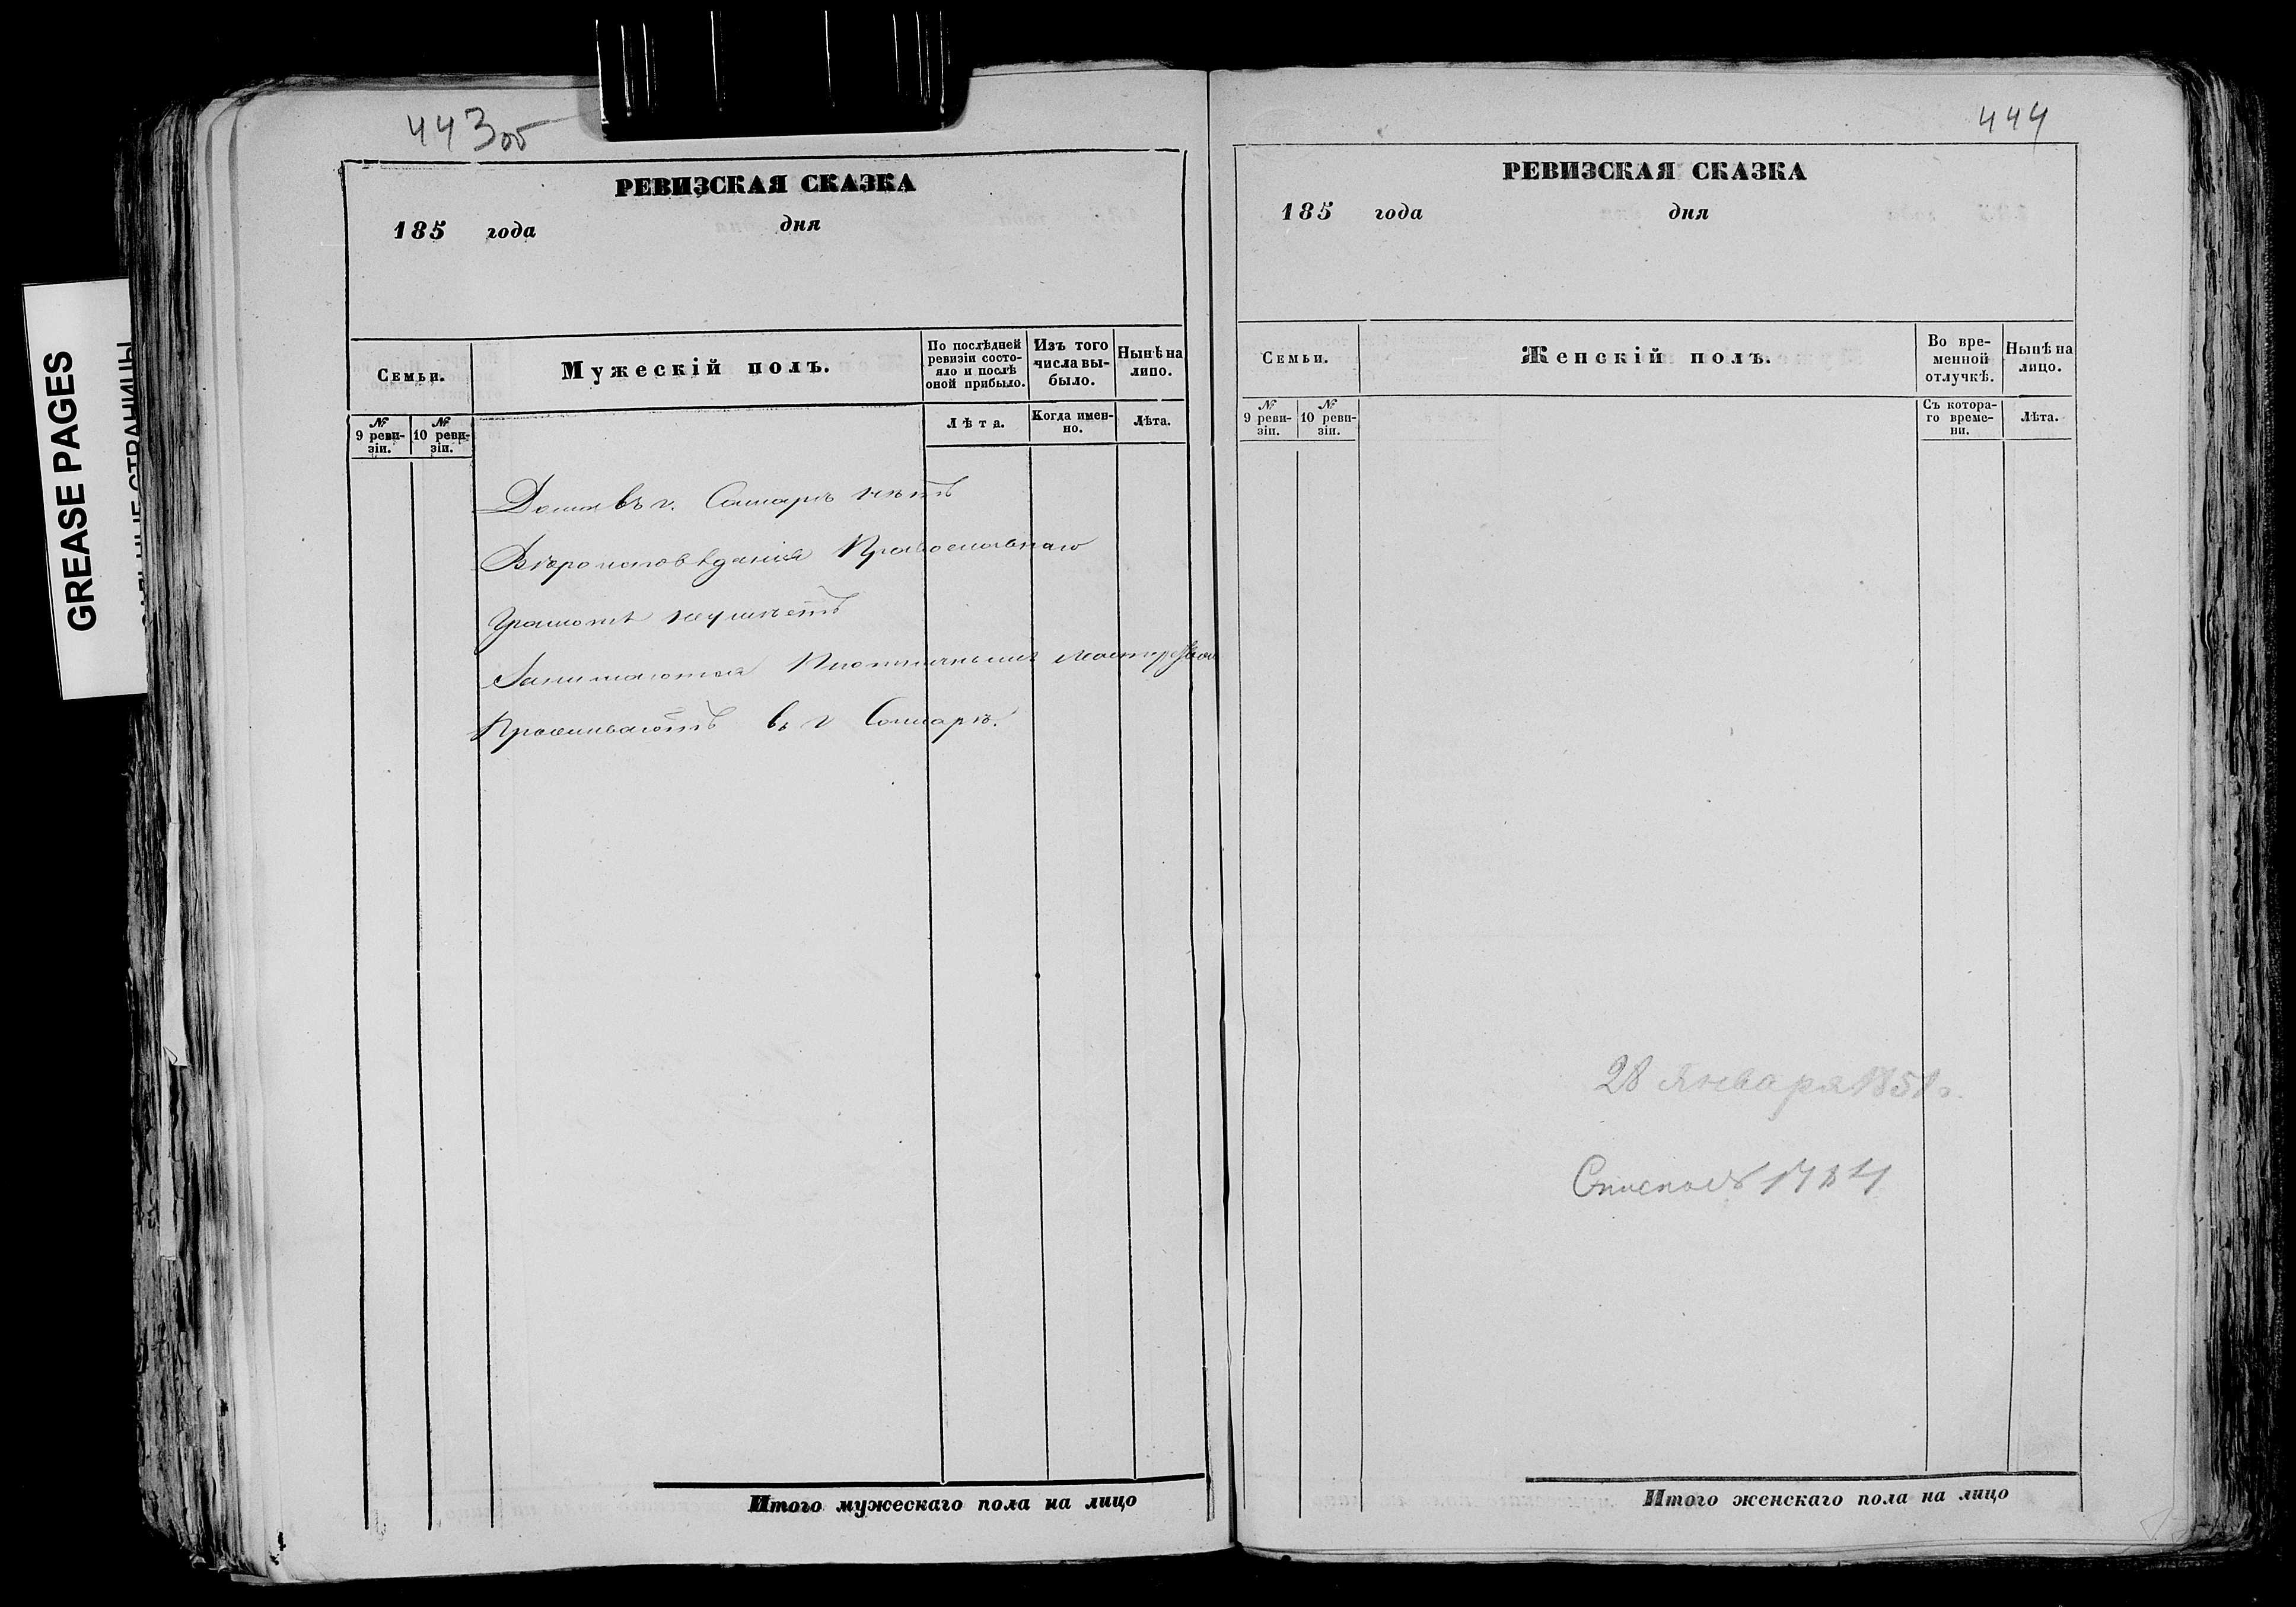 443об
РЕВИЗСКАЯ СКАЗКА
185 года дня
Семьи.
Мужескій полъ.
По послѣдней ревизіи состояло и послѣ оной прибыло.
Изъ того числа выбыло.
Нынѣ на лицо.
№ 9 ревизіи.
№ 10 ревизіи.
Лѣта.
Когда именно.
Лѣта.
Дома въ г. Самарѣ нѣтъ
Вѣроисповѣданія Православнаго
Грамотѣ неумѣетъ
Занимаются Плотничнымъ
Проживаютъ въ г Самарѣ.
Итого мужескаго пола на лицо
444
РЕВИЗСКАЯ СКАЗКА
185 года дня
Семьи.
Женскій полъ.
Во временной отлучкѣ.
Нынѣ на лицо.
№ 9 ревизіи.
№ 10 ревизіи.
Съ котораго времени.
Лѣта.
28 Января
Итого женскаго пола на лицо
GREASE PAGES